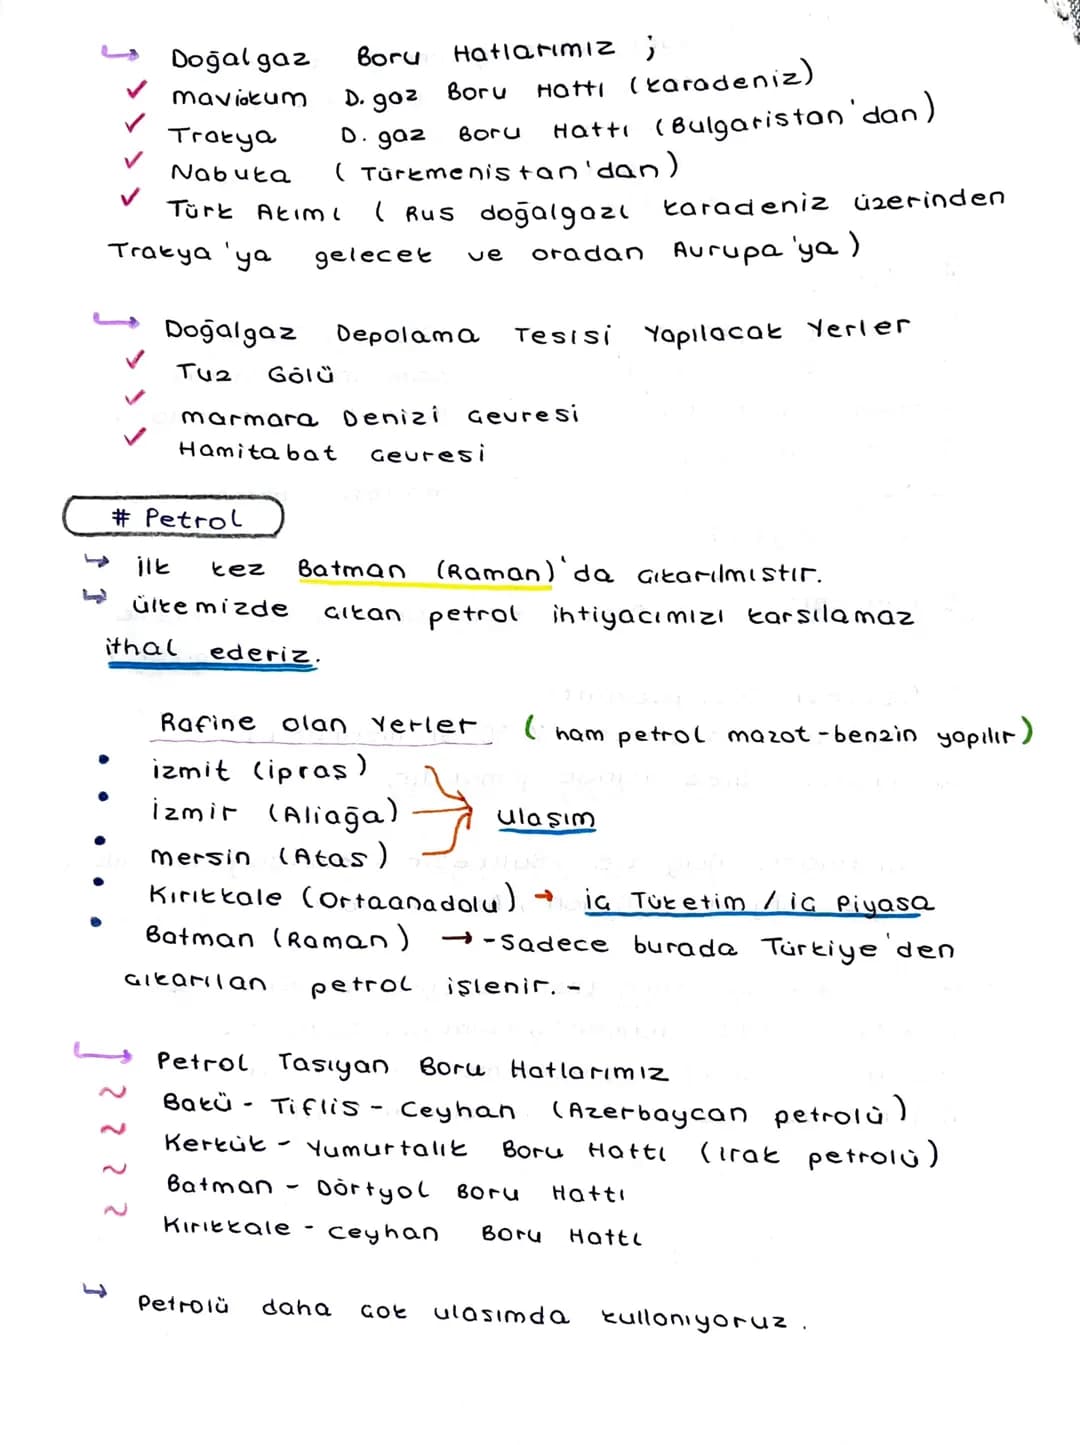 Doğalgaz Boru Hatlarımız ;
maviakım D. gaz Boru Hattı (Karadeniz)
Trakya D. gaz Boru Hattı (Bulgaristan'dan)
Nabuka (Türkmenistan'dan)
Türk Akımı (Rus doğalgazı karadeniz üzerinden
Trakya'ya gelecek ve oradan Avrupa'ya)
Doğalgaz Depolama Tesisi Yapılacak Yerler
Tuz Gölü
marmara Denizi Çevresi
Hamitabat Çevresi
# Petrol
ilk kez Batman (Raman)'da çıkarılmıştır.
ülkemizde çıkan petrol ihtiyacımızı karşılamaz
ithal ederiz.
Rafine olan Yerler (ham petrol mazot-benzin yapılır)
izmit (ipraş)
İzmir (Aliağa)
Ulaşım
mersin (Ataş)
Kırıkkale (Ortaanadolu) → iç Tüketim / iç Piyasa
Batman (Raman) → -Sadece burada Türkiye'den
çıkarılan petrol işlenir. -
Petrol Taşıyan Boru Hatlarımız
Bakü - Tiflis - Ceyhan (Azerbaycan petrolü)
Kerkük - Yumurtalık Boru Hattı (ırak petrolü)
Batman - Dörtyol Boru Hattı
Kırıkkale - Ceyhan Boru Hattı
Petrolü daha çok ulaşımda kullanıyoruz.